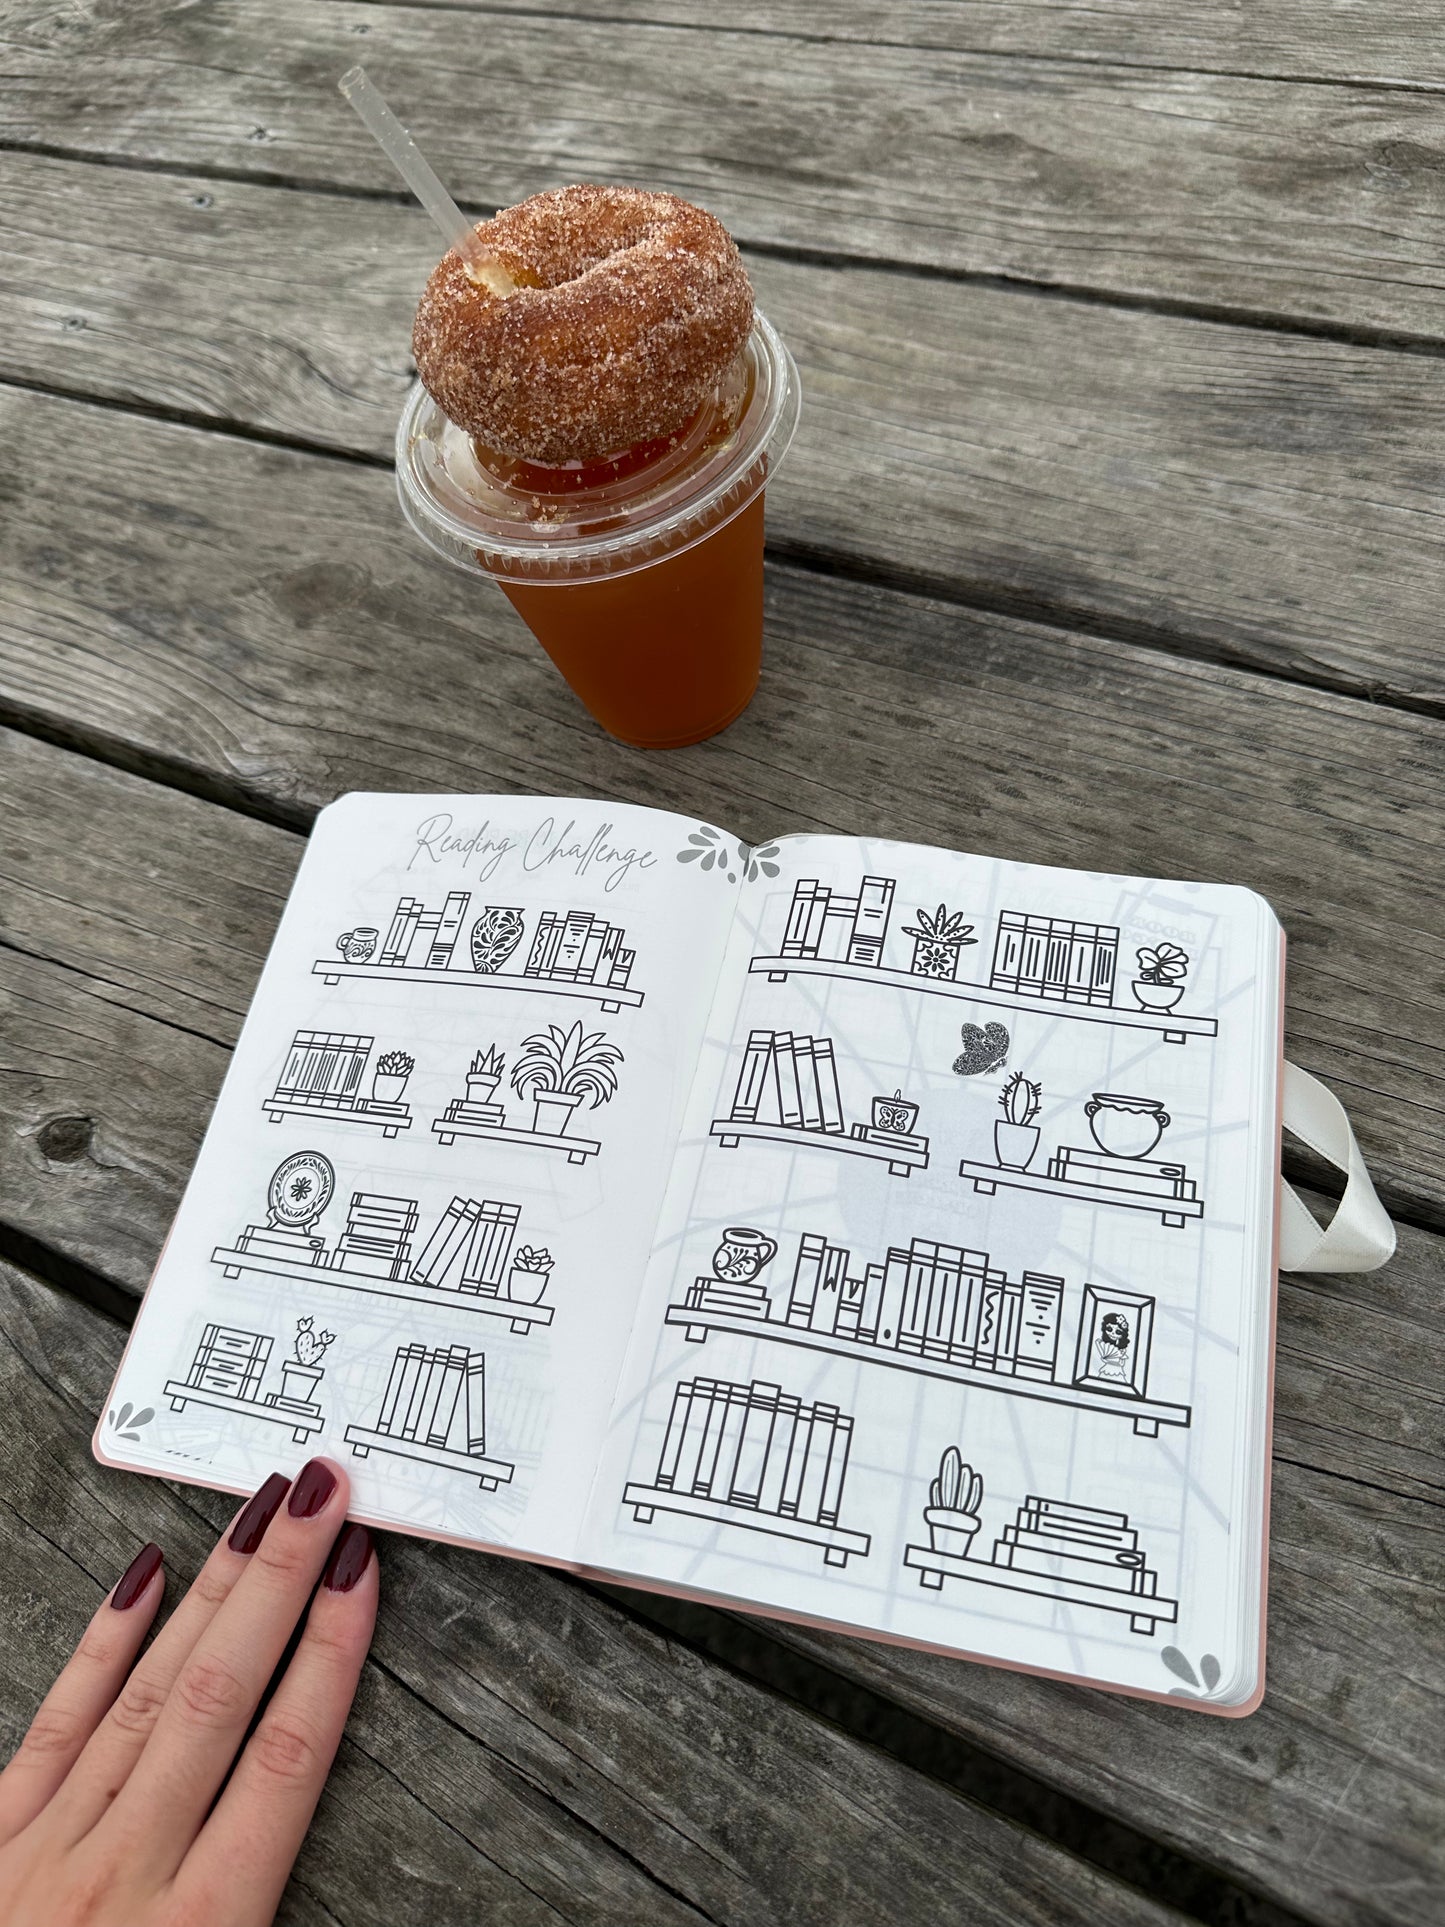 Reading Challenge